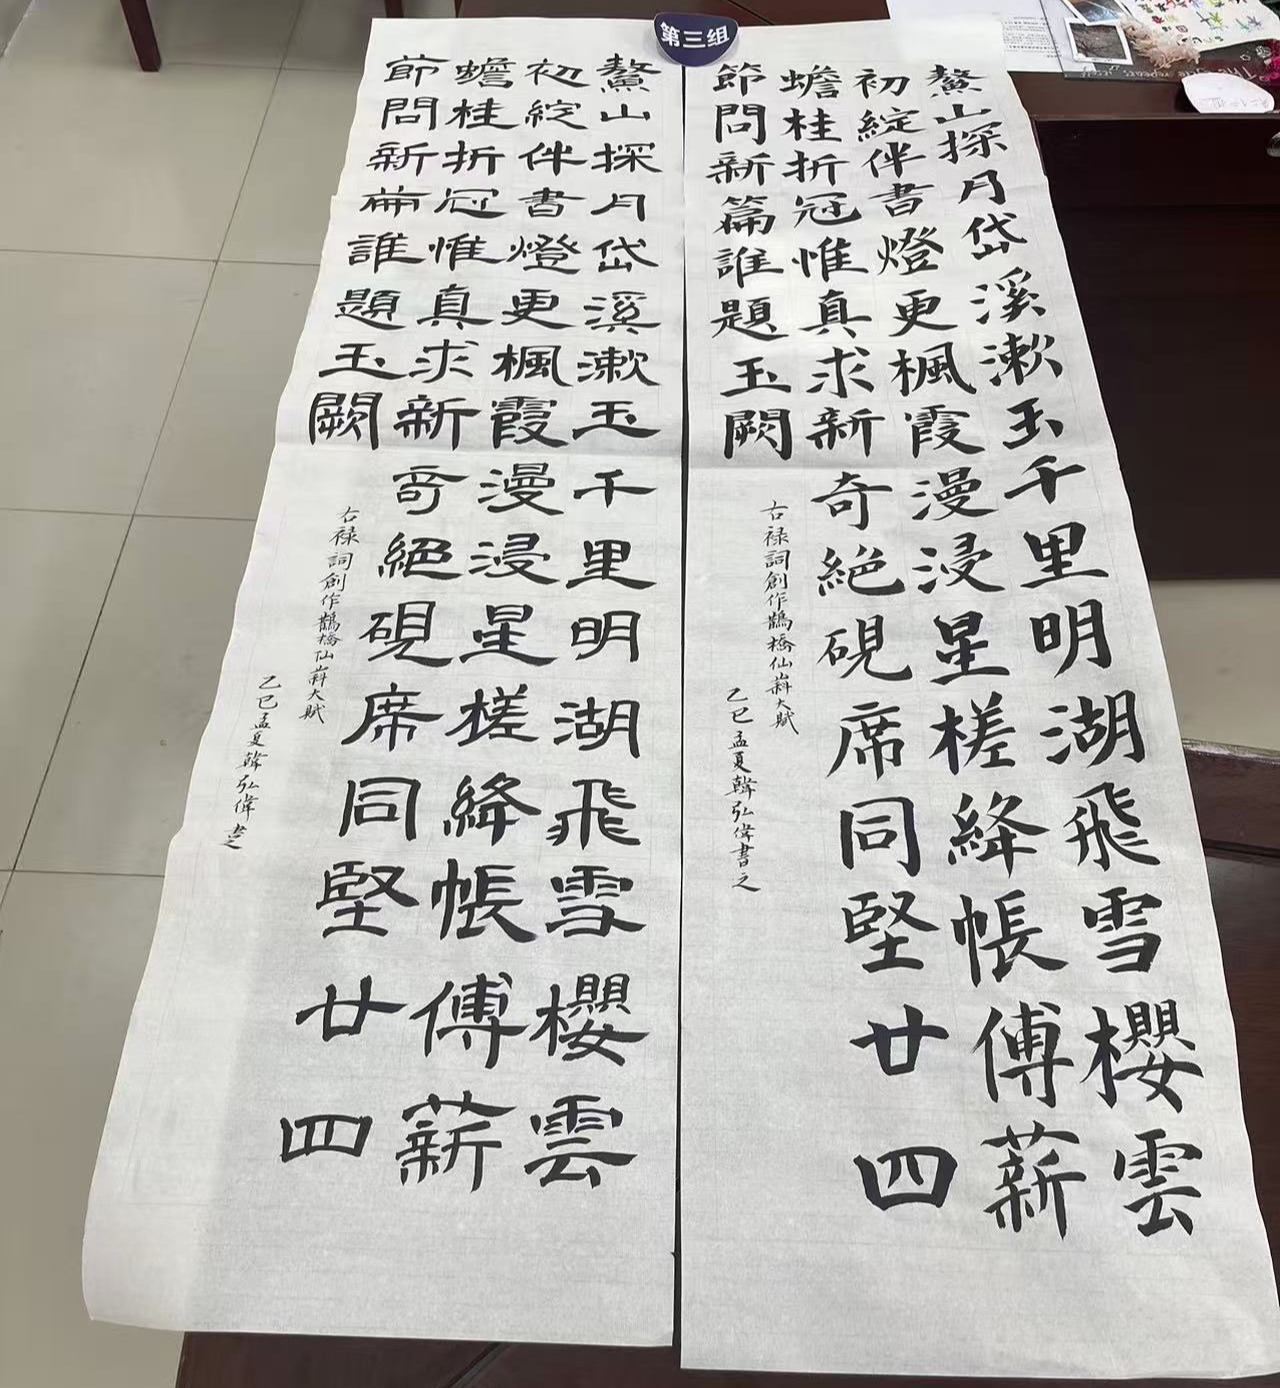 第三组
鰲山探月岱溪漱玉千里明湖飛雪櫻雲
初綻伴書燈更楓霞漫浸星槎絳帳傅薪
蟾桂折冠惟真求新奇絕硯席同堅廿四
節問新篇誰題玉闕
右祿詞創作鵲橋仙大賦
乙巳孟夏韓弘偉書之
鰲山探月岱溪漱玉千里明湖飛雪櫻雲
初綻伴書燈更楓霞漫浸星槎絳帳傅薪
蟾桂折冠惟真求新奇絕硯席同堅廿四
節問新篇誰題玉闕
右祿詞創作鵲橋仙大賦
乙巳孟夏韓弘偉書之